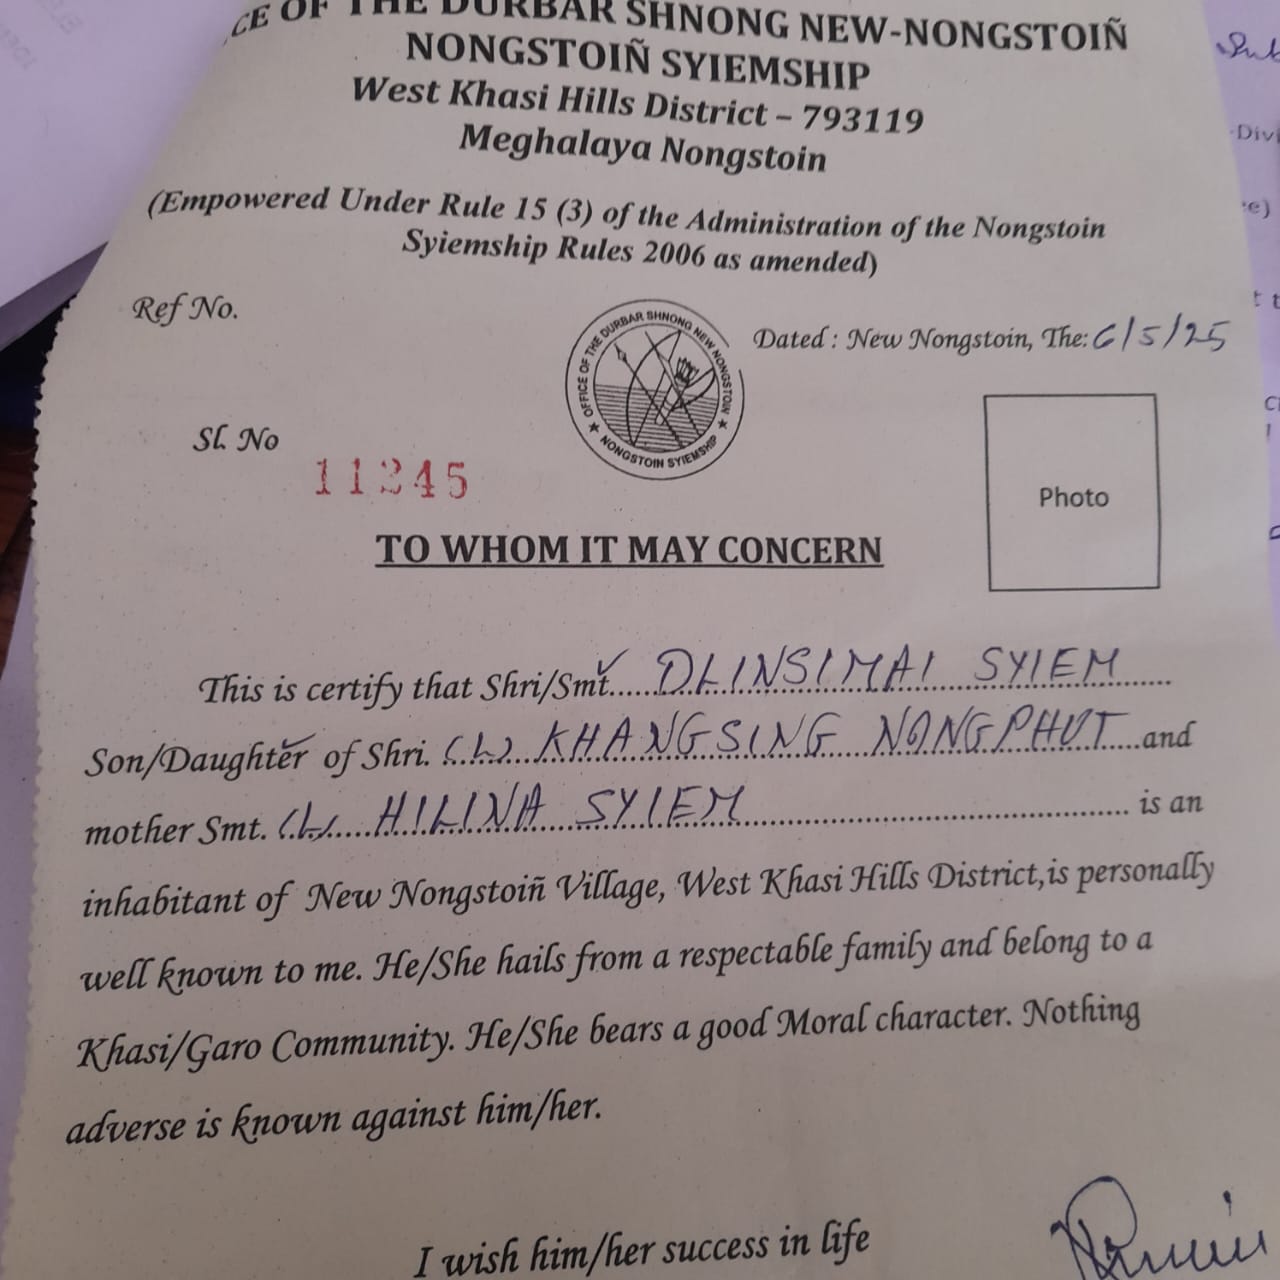 CE OF THE DURBAR SHNONG NEW-NONGSTOIÑ
NONGSTOIÑ SYIEMSHIP
West Khasi Hills District – 793119
Meghalaya Nongstoin
(Empowered Under Rule 15 (3) of the Administration of the Nongstoin
Syiemship Rules 2006 as amended)
Ref No.
OFFICE OF THE DURBAR SHNONG NEW NONGSTOIN
★ NONGSTOIN SYIEMSHIP ★
Dated : New Nongstoin, The: 6/5/25
Sl. No
11245
Photo
TO WHOM IT MAY CONCERN
This is certify that Shri/Smt..... DLINSIMAI SYIEM
Son/Daughter of Shri. (L) KHANGSING NONGPHUT and
mother Smt. (L) HILINA SYIEM is an
inhabitant of New Nongstoiñ Village, West Khasi Hills District,is personally
well known to me. He/She hails from a respectable family and belong to a
Khasi/Garo Community. He/She bears a good Moral character. Nothing
adverse is known against him/her.
I wish him/her success in life